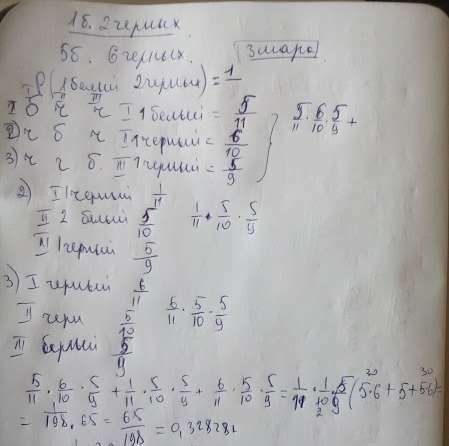 1б. 2 черных
5б. 6 черных. 3 шара
P(1 белый 2 черных) = 1
I II III
1 б ч ч I 1 белый = 5/11
2) ч б ч II 1 черный = 6/10
3) ч ч б. III 1 черный = 5/9
5/11 · 6/10 · 5/9 +
2) I 1 черный 1/11
II 2 белый 5/10 1/11 · 5/10 · 5/9
III 1 черный 5/9
3) I черный 6/11
II черн 5/10 6/11 · 5/10 · 5/9
III белый 5/9
5/11 · 6/10 · 5/9 + 1/11 · 5/10 · 5/9 + 6/11 · 5/10 · 5/9 = 1/11 · 1/10 · 5/9 (5·6 + 5 + 5·6) =
= 1/198 · 65 = 65/198 = 0,328282